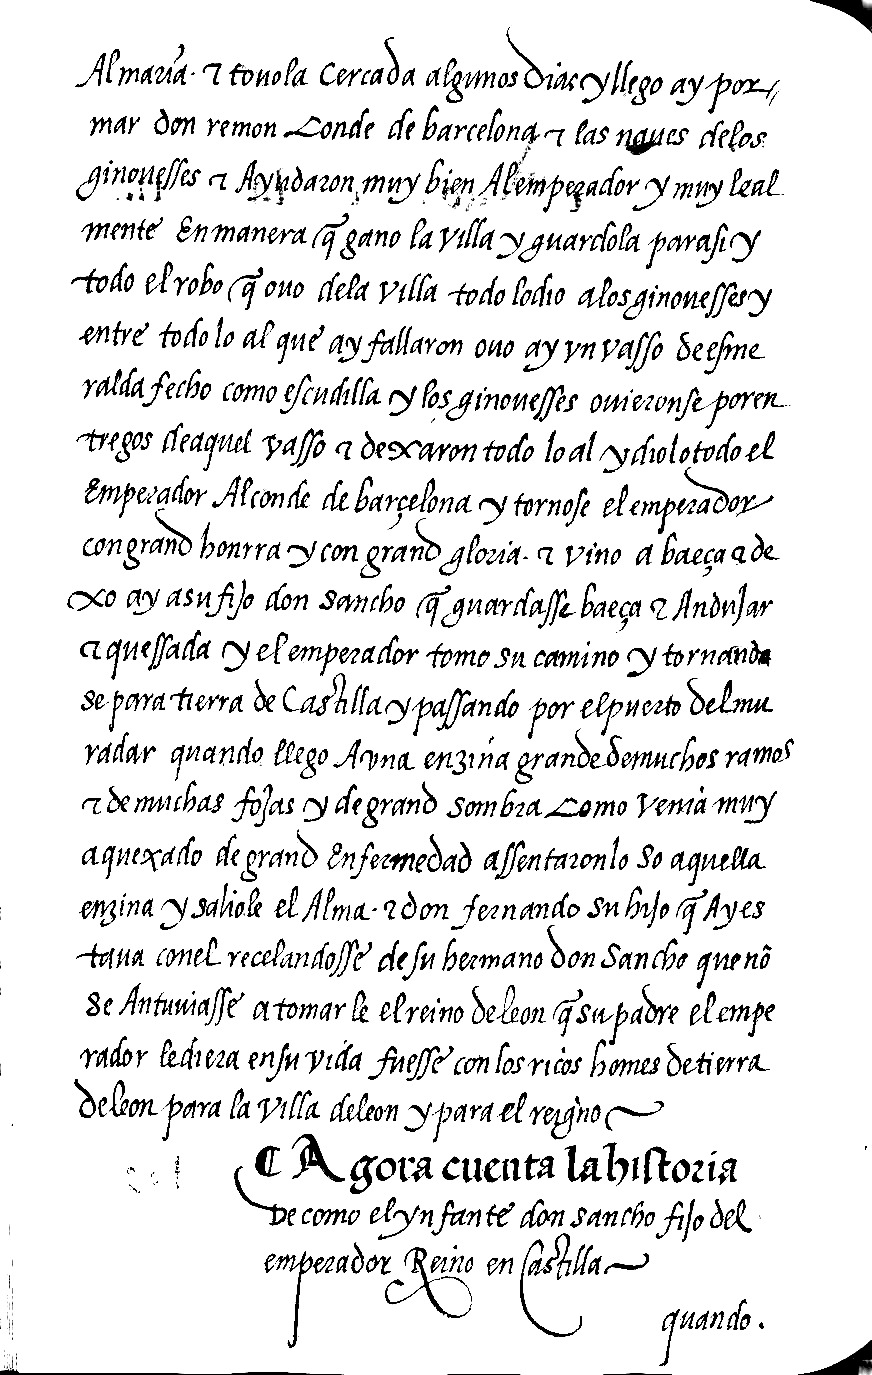 Almaria. τ touola cercada algunos dias y llego ay por
mar don remon Conde de barcelona τ las naues delos
ginouesses τ Ayudaron muy bien Al emperador y muy leal
mente En manera q̃ gano la villa y guardola parasi y
todo el robo q̃ ouo dela villa todo lo dio a los ginouesses y
entre todo lo al que ay fallaron ouo ay vn vasso de esme
ralda fecho como escudilla y los ginouesses ouieronse por en
tregos de aquel vasso τ dexaron todo lo al y diolo todo el
Emperador Al conde de barçelona y tornose el emperador
con grand honrra y con grand gloria. τ vino a baeça τ de
xo ay a su fijo don sancho q̃ guardasse baeça τ Andujar
τ quessada y el emperador tomo su camino y tornando
se para tierra de Castilla y passando por el puerto del mu
radar quando llego A vna enzina grande de muchos ramos
τ de muchas fojas y de grand sombra Como venia muy
aquexado de grand Enfermedad assentaronlo so aquella
enzina y saliole el Alma. τ don fernando su hijo q̃ Ay es
taua con el recelandosse de su hermano don Sancho que nõ
Se Antuuiasse a tomar le el reino de leon q̃ su padre el empe
rador le diera en su vida fuesse con los ricos homes de tierra
de leon para la villa de leon y para el reigno
¶ Agora cuenta la historia
De como el ynfante don sancho fijo del
emperador Reino en Castilla
quando.